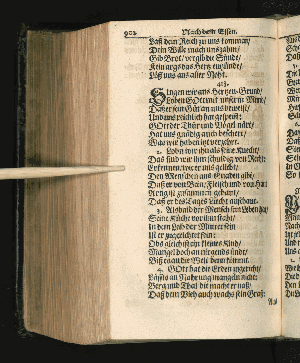 902 Nach dem Essen.
Laß dein Reich zu uns kommen/
Dein Will mach uns zahm/
Gib Brot/ vergib die Sünde/
Kein args das Hertz entzünde/
Löß uns aus aller Noht.
Singen wir aus Hertzen-Grund/
Loben GOtt mit unserm Mund/
Daß er sein Güt an uns beweist/
Und uns reichlich hat gespeist:
Wie er Thier und Vögel nährt/
Hat uns gnädig auch beschert/
Das wir haben jetzt verzehrt.
2. Loben wir ihn als seine Knecht/
Das sind wir ihm schuldig von Recht:
Erkennen/ wie er uns geliebt/
Den Menschen aus Gnaden gibt/
Daß er von Bein/ Fleisch und von Haut
Artig ist zusammen gebaut/
Daß er des Tages Licht anschaut.
3. Alsbald der Mensch sein Leben hat/
Seine Küche vor ihm steht/
In dem Leib der Mutter sein
Ist er zugerichtet fein:
Ob es gleich ist ein kleines Kind/
Mangel doch an nirgends find/
Biß es an die Welt kommt.
4. GOtt hat die Erden zugericht/
Läßts an Nahrung mangeln nicht:
Berg und Thal die macht er naß/
Daß dem Vieh auch wachs sein Graß:
Aus